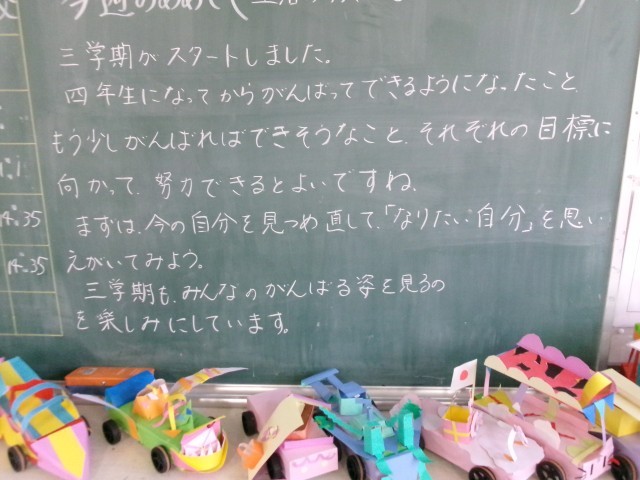 今週のめあて(
三学期がスタートしました。
四年生になってからがんばってできるようになったこと、
もう少しがんばればできそうなこと、それぞれの目標に
向かって、努力できるとよいですね。
まずは、今の自分を見つめ直して、「なりたい自分」を思い
えがいてみよう。
三学期も、みんなのがんばる姿を見るの
を楽しみにしています。
14:35
14:35